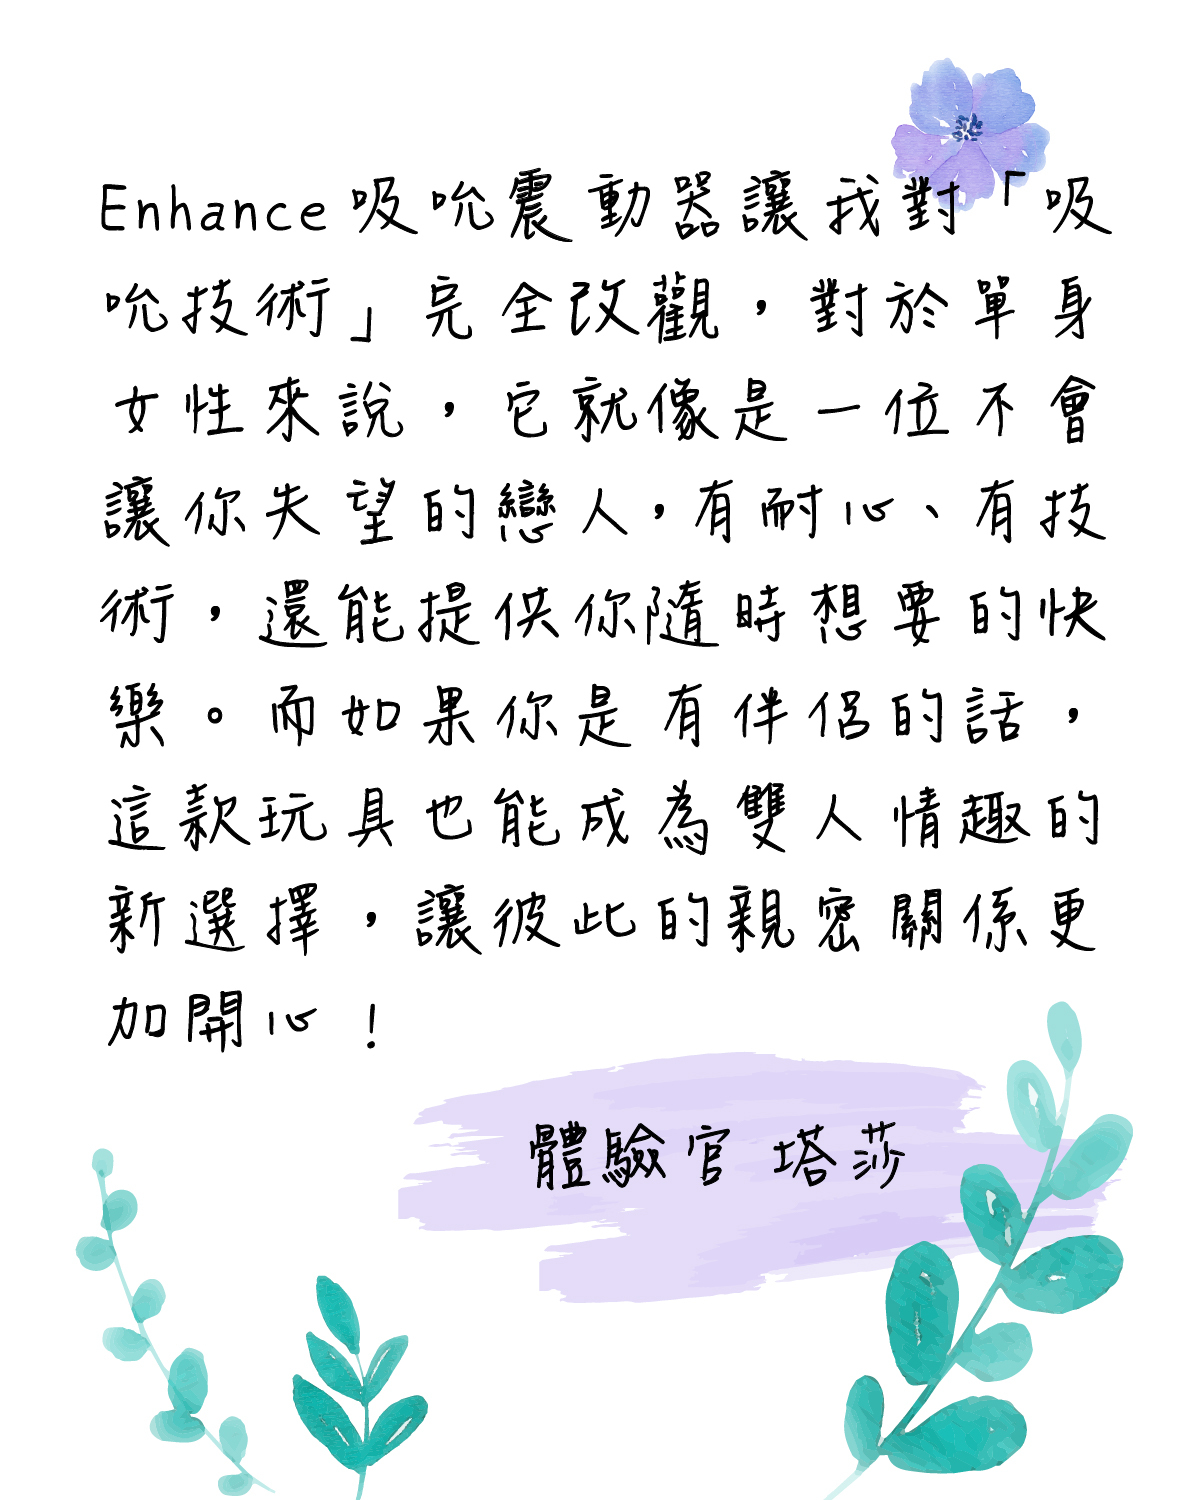 Enhance 吸吮震動器讓我對「吸
吮技術」完全改觀，對於單身
女性來說，它就像是一位不會
讓你失望的戀人，有耐心、有技
術，還能提供你隨時想要的快
樂。而如果你是有伴侶的話，
這款玩具也能成為雙人情趣的
新選擇，讓彼此的親密關係更
加開心！
體驗官 塔莎